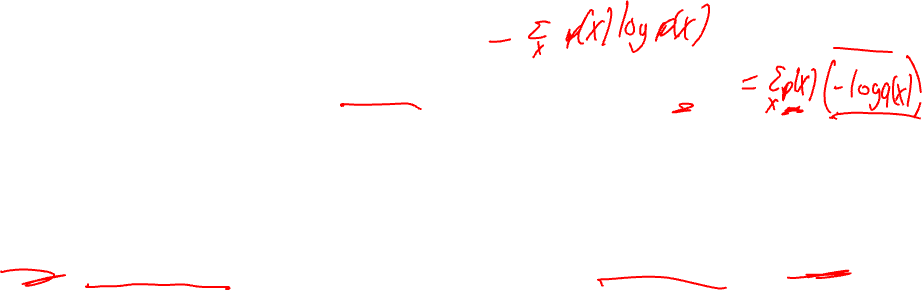 - Σ_x p(x) log p(x)
= Σ_x p(x) (-log q(x))